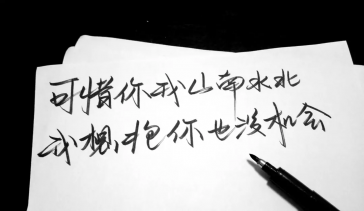 可惜你我山南水北
我想抱你也没机会